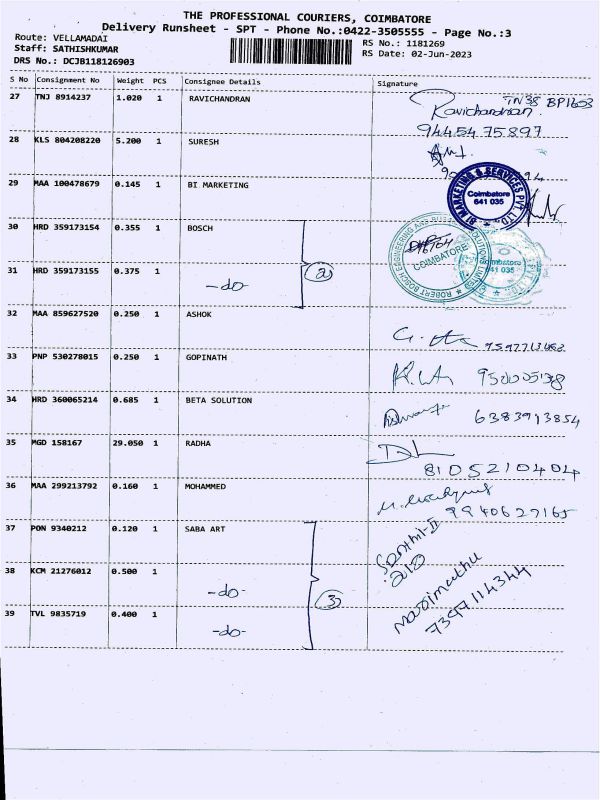 THE PROFESSIONAL COURIERS, COIMBATORE
Delivery Runsheet - SPT - Phone No.:0422-3505555 - Page No.:3
Route: VELLAMADAI
RS No.: 1181269
Staff: SATHISHKUMAR
RS Date: 02-Jun-2023
DRS No.: DCJB118126903
S No Consignment No Weight PCS Consignee Details Signature
27 TNJ 8914237 1.020 1 RAVICHANDRAN
TN38 BP1603
Ravichandran
9445475897
28 KLS 804208220 5.200 1 SURESH
29 MAA 100478679 0.145 1 BI MARKETING
BI MARKETING & SERVICES PVT. LTD.
Coimbatore
641 035
30 HRD 359173154 0.355 1 BOSCH
ROBERT BOSCH ENGINEERING AND BUSINESS SOLUTIONS LIMITED
COIMBATORE
Coimbatore
641 035
PVT. LTD.
31 HRD 359173155 0.375 1
-do-
2
32 MAA 859627520 0.250 1 ASHOK
33 PNP 530278015 0.250 1 GOPINATH
34 HRD 360065214 0.685 1 BETA SOLUTION
6383913854
35 MGD 158167 29.050 1 RADHA
8105210404
36 MAA 299213792 0.160 1 MOHAMMED
9940627165
37 PON 9340212 0.120 1 SABA ART
38 KCM 21276012 0.500 1
-do-
3
Marimuthu
7397114344
39 TVL 9835719 0.400 1
-do-